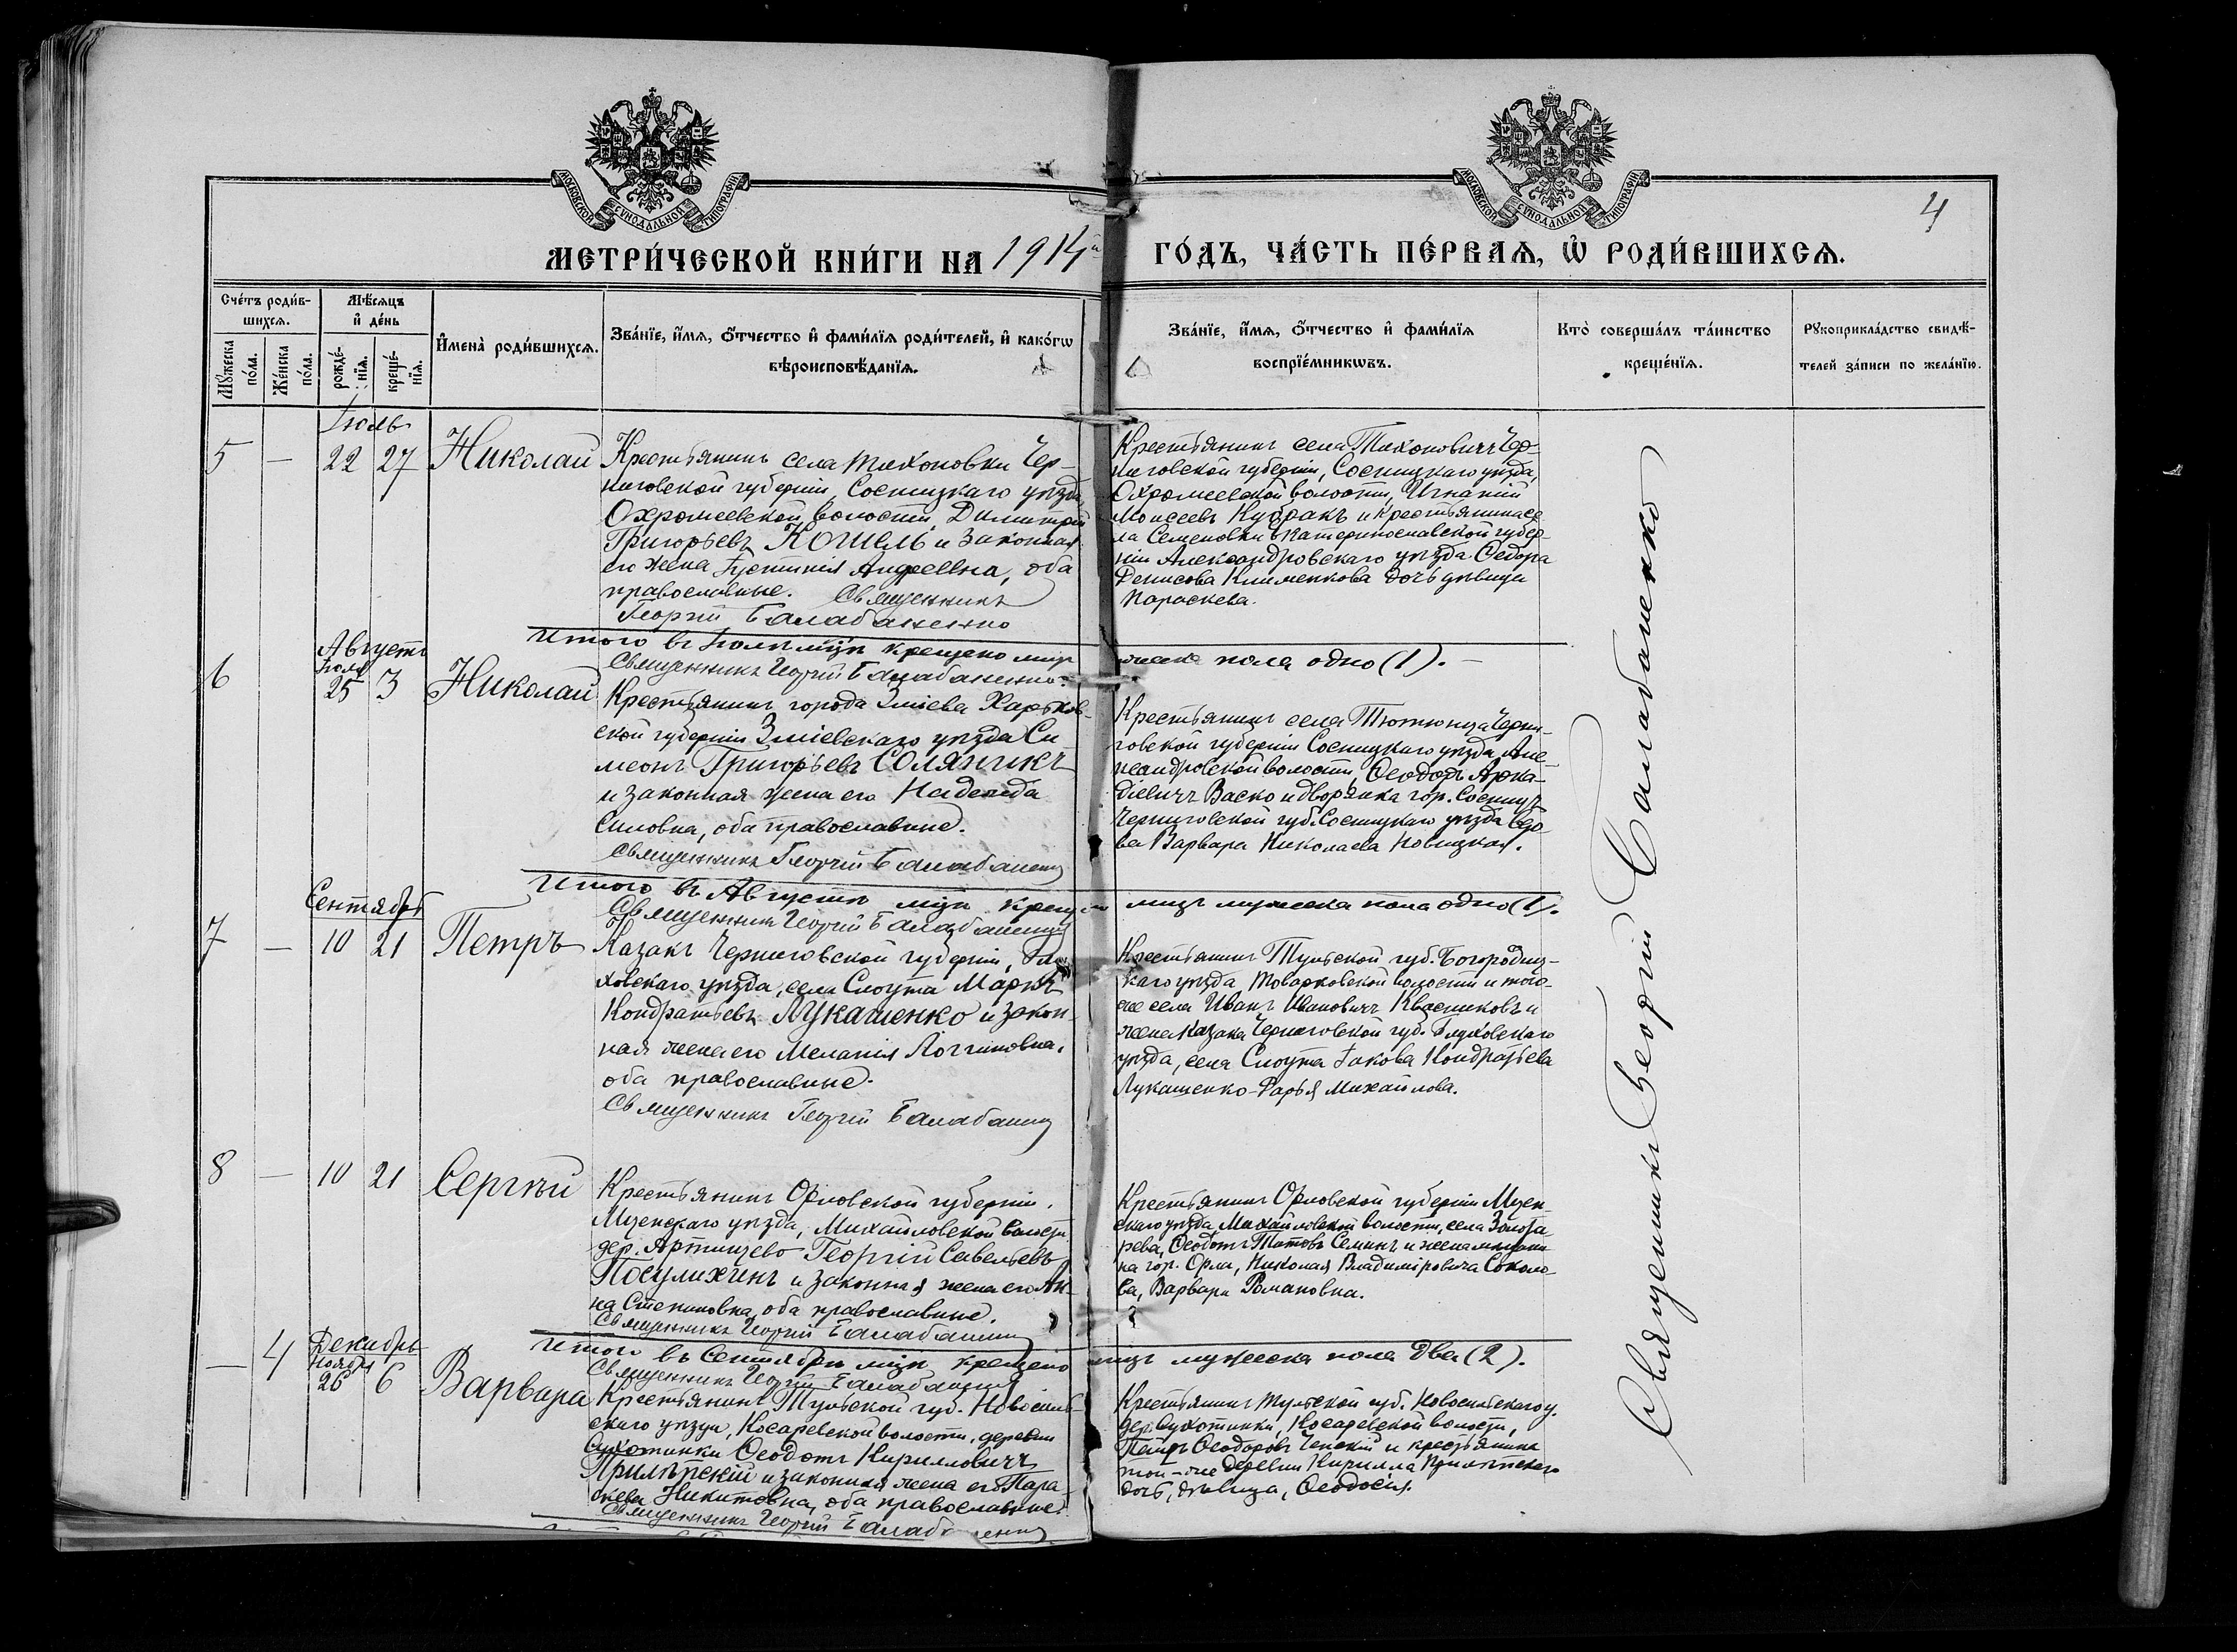 МОСКОВСКОЙ СѴНОДАЛЬНОЙ ТИПОГРАФІИ
МОСКОВСКОЙ СѴНОДАЛЬНОЙ ТИПОГРАФІИ
4
МЕТРИ́ЧЕСКОЙ КНИ́ГИ НА 1914й ГО́ДЪ, ЧА́СТЬ ПЕ́РВАѦ, Ѡ҆ РОДИ́ВШИХСѦ.
Сче́тъ роди́в-
шихсѧ.
Мꙋ́жеска по́ла.
Же́нска по́ла.
Мѣ́сѧцъ
и҆ де́нь
рожде́-
нїѧ.
креще́-
нїѧ.
И҆мена̀ роди́вшихсѧ.
Зва́нїе, и҆́мѧ, ѻ҆́тчество и҆ фами́лїѧ роди́телей, и҆ како́гѡ
вѣроисповѣ́данїѧ.
Зва́нїе, и҆́мѧ, ѻ҆́тчество и҆ фами́лїѧ
воспрїе́мникѡвъ.
Кто̀ соверша́лъ та́инство
креще́нїѧ.
Рꙋкоприкла́дство свидѣ́-
телей за́писи по жела́нїю.
Іюль
5 — 22 27 Николай
Крестьянинъ села Тихоновки Чер-
ниговской губерніи, Сосницкаго уѣзда,
Охромеевской волости, Димитрій
Григорьевъ КОШЕЛЬ и законная
его жена Іустинія Андреевна, оба
православные. Священникъ
Георгій Балабаненко
Крестьянинъ села Тихоновичъ Чер-
ниговской губерніи, Сосницкаго уѣзда,
Охромеевской волости, Игнатій
Моисеевъ Кубракъ и крестьянина се
ла Семеновки Екатеринославской губер-
ніи Александровскаго уѣзда Ѳедора
Денисова Клименкова дочь дѣвица
Параскева.
Итого въ Іюлѣ мцѣ крещено муж
жеска пола одно (1). —
Священникъ Георгій Балабаненко.
Августъ
6 Іюля 25 3 Николай
Крестьянинъ города Зміева Харьков-
ской губерніи Зміевскаго уѣзда Си-
меонъ Григорьевъ СОЛЯНИКЪ
и законная жена его Надежда
Силовна, оба православные.
Священникъ Георгій Балабаненко
Крестьянинъ села Тютюница Черни-
говской губерніи Сосницкаго уѣзда, Але-
ксандровской волости, Ѳеодоръ Арка-
діевичъ Васко и дворянка гор. Сосницъ
Черниговской губ. Сосницкаго уѣзда вдо
ва Варвара Николаева Новицкая.
Итого въ Августѣ мцѣ крещено
лицъ мужеска пола одно (1).
Священникъ Георгій Балабаненко
Сентябрь
7 — 10 21 Петръ
Казакъ Черниговской губерніи, Глу
ховскаго уѣзда, села Слоута Маркъ
Кондратьевъ ЛУКАШЕНКО и закон-
ная жена его Меланія Логгиновна,
оба православные.
Священникъ Георгій Балабаненко
Крестьянинъ Тульской губ. Богородиц-
каго уѣзда Товарковской волости и того-
же села Иванъ Ивановичъ Квасниковъ и
жена казака Черниговской губ. Глуховскаго
уѣзда, села Слоута Іакова Кондратьева
Лукашенко-Дарья Михайлова.
8 — 10 21 Сергѣй
Крестьянинъ Орловской губерніи,
Мценскаго уѣзда, Михайловской волости,
дер. Артищево Георгій Савельевъ
Посулихинъ и законная жена его Ан-
на Степановна, оба православные.
Священникъ Георгій Балабаненко
Крестьянинъ Орловской губерніи Мцен-
скаго уѣзда, Михайловской волости, села Золота
рева, Ѳеодотъ Титовъ Семинъ и жена мѣщани
на гор. Орла, Николая Владиміровича Соколо-
ва, Варвара Романовна.
Итого въ Сентябрѣ мцѣ крещено
лицъ мужеска пола два (2).
Священникъ Георгій Балабаненко
Декабрь
— 4 Ноября 26 6 Варвара
Крестьянинъ Тульской губ. Новосиль-
скаго уѣзда, Косаревской волости, деревни
Сухотинки Ѳеодотъ Кирилловичъ
Прилѣпскій и законная жена его Пара-
скева Никитовна, оба православные.
Священникъ Георгій Балабаненко
Крестьянинъ Тульской губ. Новосильскаго у.
дер. Сухотинки, Косаревской волости,
Петръ Ѳеодоровъ Ченскій и крестьянина
той-же деревни Кирилла Прилѣпскаго
дочь, дѣвица, Ѳеодосія.
Священникъ Георгій Балабаненко